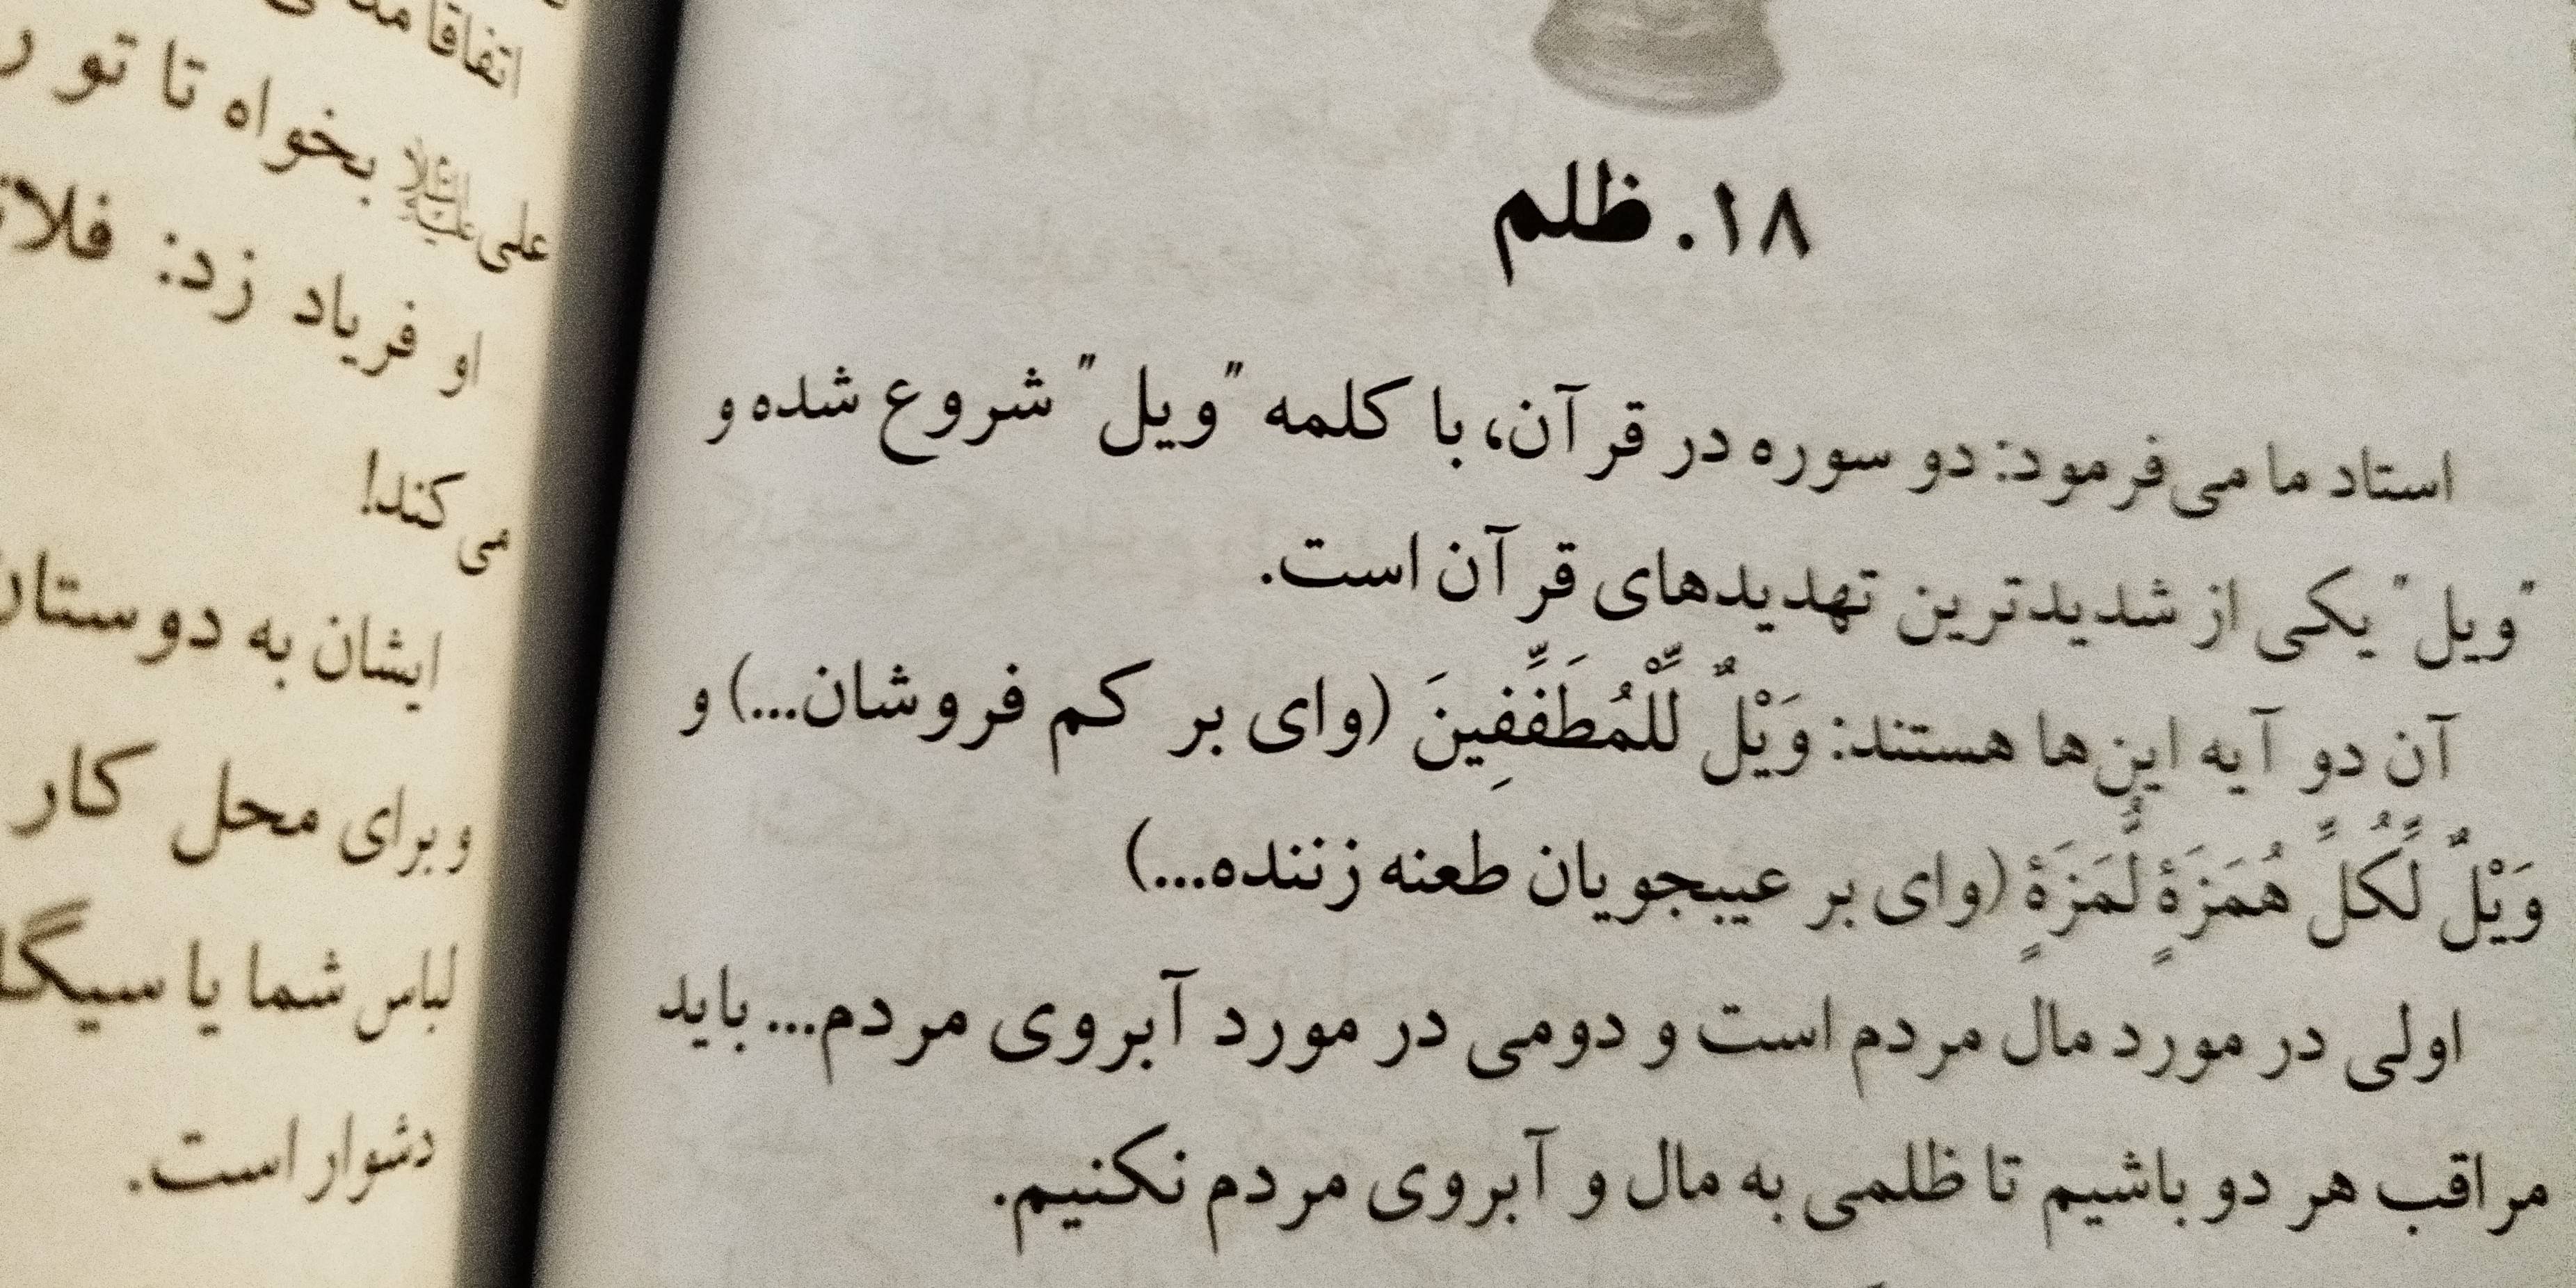 ۱۸. ظلم
استاد ما می‌فرمود: دو سوره در قرآن، با کلمه "ویل" شروع شده و
"ویل" یکی از شدیدترین تهدیدهای قرآن است.
آن دو آیه این‌ها هستند: وَیْلٌ لِّلْمُطَفِّفِینَ (وای بر کم فروشان...) و
وَیْلٌ لِّکُلِّ هُمَزَةٍ لُّمَزَةٍ (وای بر عیبجویان طعنه زننده...)
اولی در مورد مال مردم است و دومی در مورد آبروی مردم... باید
مراقب هر دو باشیم تا ظلمی به مال و آبروی مردم نکنیم.
اتفاقا
علی علیه‌السلام بخواه تا تو
او فریاد زد:
می‌کند!
ایشان به دوستان
و برای محل کار
لباس شما یا
دشوار است.